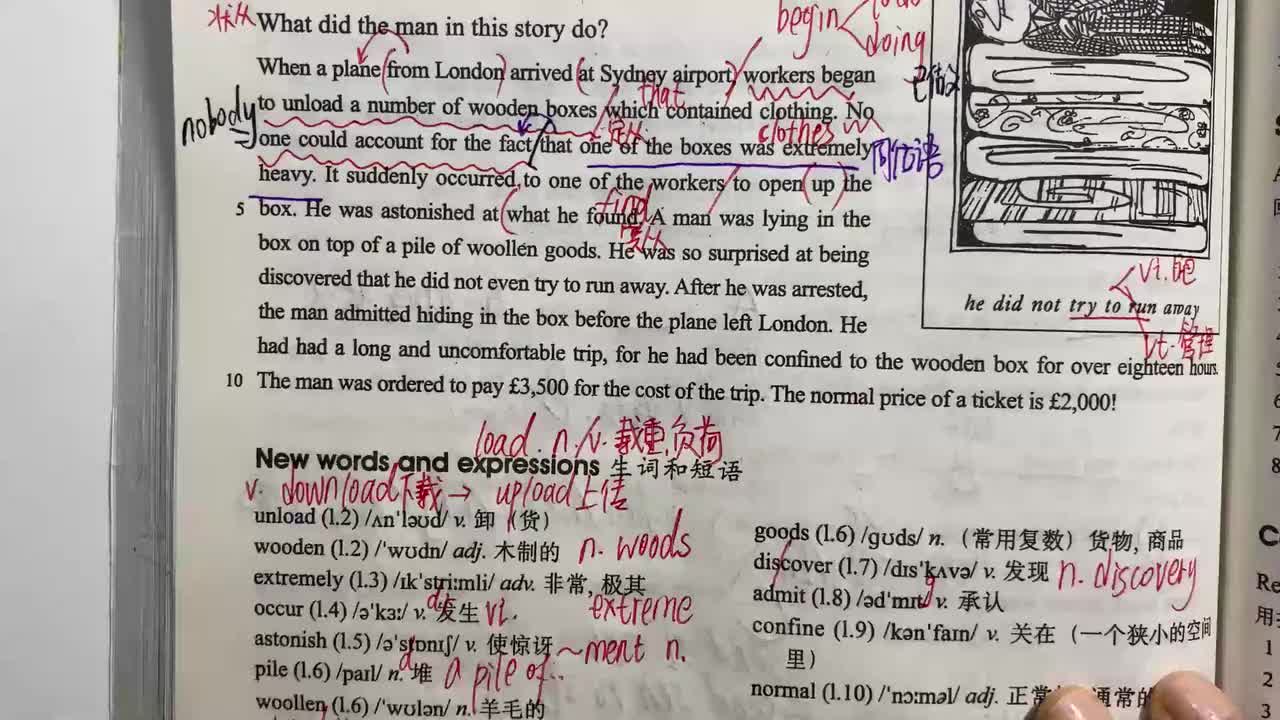 状从 What did the man in this story do?
begin
doing
When a plane (from London) arrived (at Sydney airport, workers began
to unload a number of wooden boxes which contained clothing. No
that
nobody
定从
clothes
one could account for the fact that one of the boxes was extremely
同位语
heavy. It suddenly occurred to one of the workers to open (up) the
find
5 box. He was astonished at (what he found. A man was lying in the
宾从
box on top of a pile of woollen goods. He was so surprised at being
discovered that he did not even try to run away. After he was arrested,
the man admitted hiding in the box before the plane left London. He
had had a long and uncomfortable trip, for he had been confined to the wooden box for over eighteen hours.
10 The man was ordered to pay £3,500 for the cost of the trip. The normal price of a ticket is £2,000!
vi. 跑
he did not try to run away
vt. 管理
load. n./v. 载重,负荷
New words and expressions 生词和短语
v. download下载 → upload上传
unload (l.2) /ʌnˈləʊd/ v. 卸（货）
wooden (l.2) /ˈwʊdn/ adj. 木制的 n. woods
extremely (l.3) /ɪkˈstriːmli/ adv. 非常, 极其
extreme
occur (l.4) /əˈkɜː/ v. 发生 vi.
astonish (l.5) /əˈstɒnɪʃ/ v. 使惊讶 ~ment n.
pile (l.6) /paɪl/ n. 堆 a pile of..
woollen (l.6) /ˈwʊlən/ n. 羊毛的
goods (l.6) /ɡʊds/ n.（常用复数）货物, 商品
discover (l.7) /dɪsˈkʌvə/ v. 发现 n. discovery
admit (l.8) /ədˈmɪt/ v. 承认
confine (l.9) /kənˈfaɪn/ v. 关在（一个狭小的空间
里）
normal (l.10) /ˈnɔːməl/ adj. 正常 通常的
Re
用
1
2
3
7
8